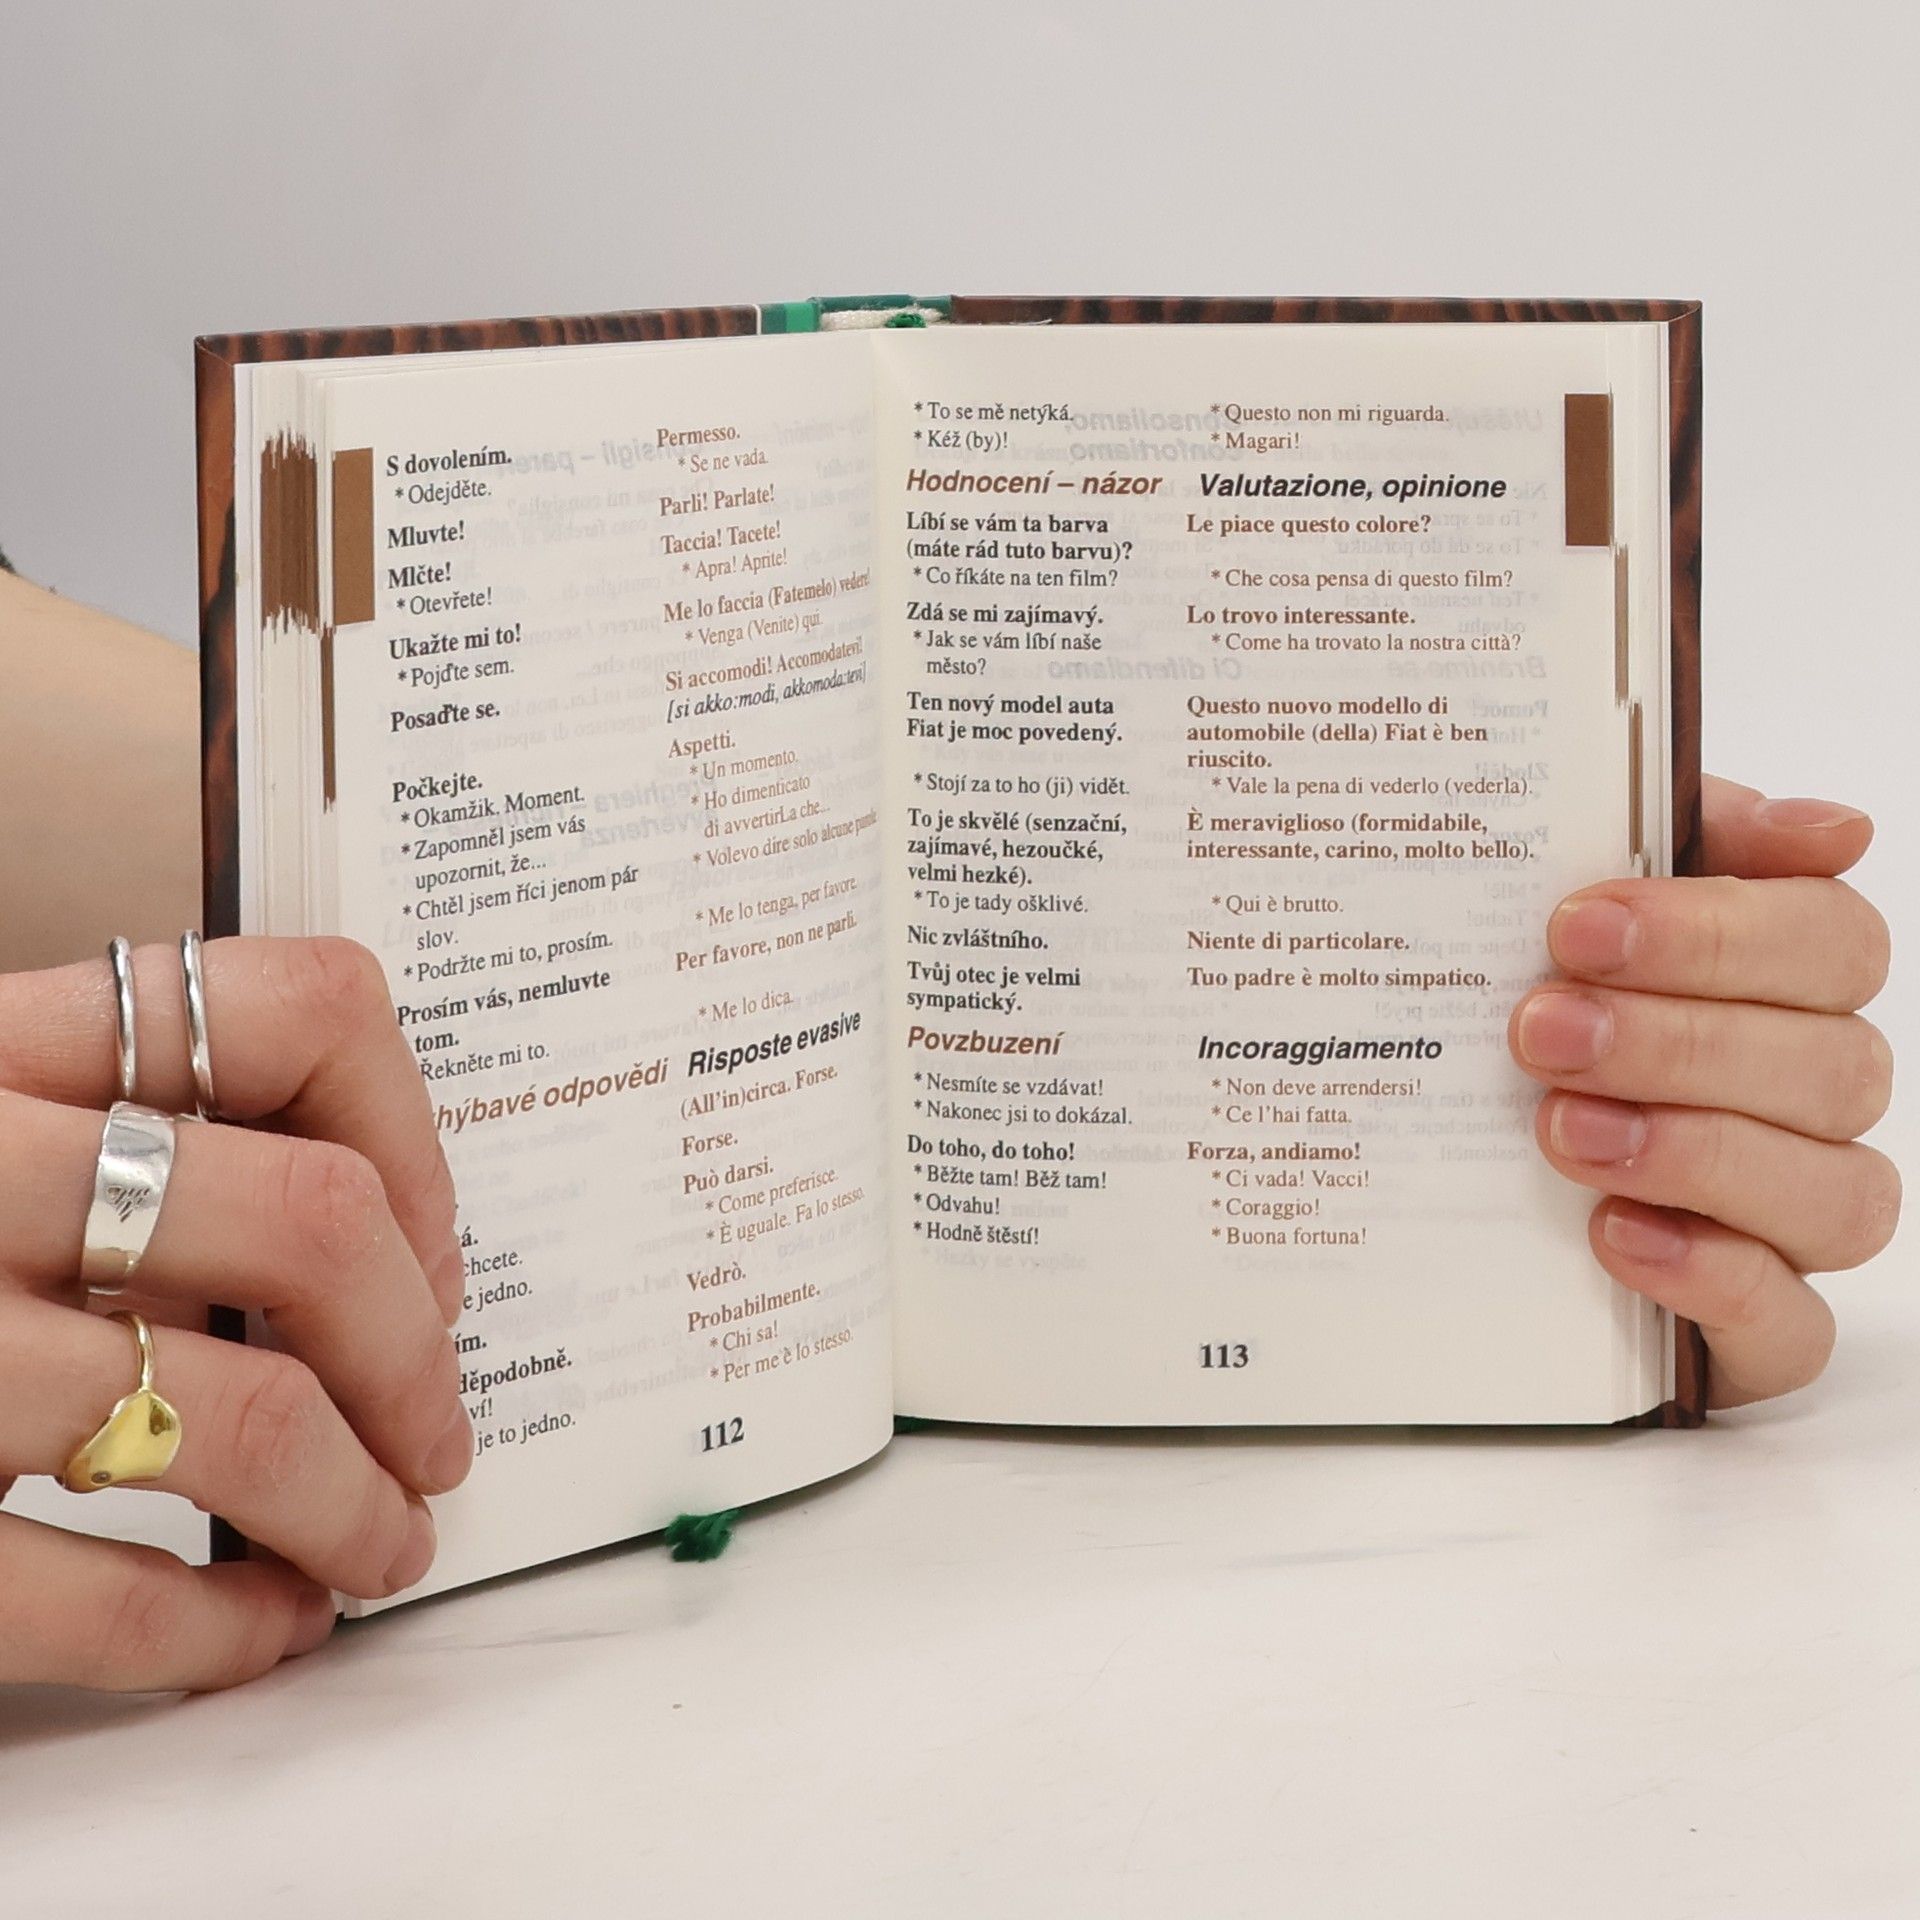 S dovolením.
* Odejděte.
Mluvte!
Mlčte!
* Otevřete!
Ukažte mi to!
* Pojďte sem.
Posaďte se.
Počkejte.
* Okamžik. Moment.
* Zapomněl jsem vás
upozornit, že...
* Chtěl jsem říci jenom pár
slov.
* Podržte mi to, prosím.
Prosím vás, nemluvte
tom.
Řekněte mi to.
odpovědi
chcete.
jedno.
je to jedno.
Permesso.
* Se ne vada.
Parli! Parlate!
Taccia! Tacete!
* Apra! Aprite!
Me lo faccia (Fatemelo) vedere!
* Venga (Venite) qui.
Si accomodi! Accomodatevi!
[si akko:modi, akkomoda:tevi]
Aspetti.
* Un momento.
* Ho dimenticato
di avvertirLa che...
* Volevo dire solo alcune parole
* Me lo tenga, per favore.
Per favore, non ne parli.
* Me lo dica.
Risposte evasive
(All'in)circa. Forse.
Forse.
Può darsi.
* Come preferisce.
* È uguale. Fa lo stesso.
Vedrò.
Probabilmente.
* Chi sa!
* Per me è lo stesso.
112
* To se mě netýká.
* Kéž (by)!
Hodnocení – názor
Líbí se vám ta barva
(máte rád tuto barvu)?
* Co říkáte na ten film?
Zdá se mi zajímavý.
* Jak se vám líbí naše
město?
Ten nový model auta
Fiat je moc povedený.
* Stojí za to ho (ji) vidět.
To je skvělé (senzační,
zajímavé, hezoučké,
velmi hezké).
* To je tady ošklivé.
Nic zvláštního.
Tvůj otec je velmi
sympatický.
Povzbuzení
* Nesmíte se vzdávat!
* Nakonec jsi to dokázal.
Do toho, do toho!
* Běžte tam! Běž tam!
* Odvahu!
* Hodně štěstí!
* Questo non mi riguarda.
* Magari!
Valutazione, opinione
Le piace questo colore?
* Che cosa pensa di questo film?
Lo trovo interessante.
* Come ha trovato la nostra città?
Questo nuovo modello di
automobile (della) Fiat è ben
riuscito.
* Vale la pena di vederlo (vederla).
È meraviglioso (formidabile,
interessante, carino, molto bello).
* Qui è brutto.
Niente di particolare.
Tuo padre è molto simpatico.
Incoraggiamento
* Non deve arrendersi!
* Ce l'hai fatta.
Forza, andiamo!
* Ci vada! Vacci!
* Coraggio!
* Buona fortuna!
113